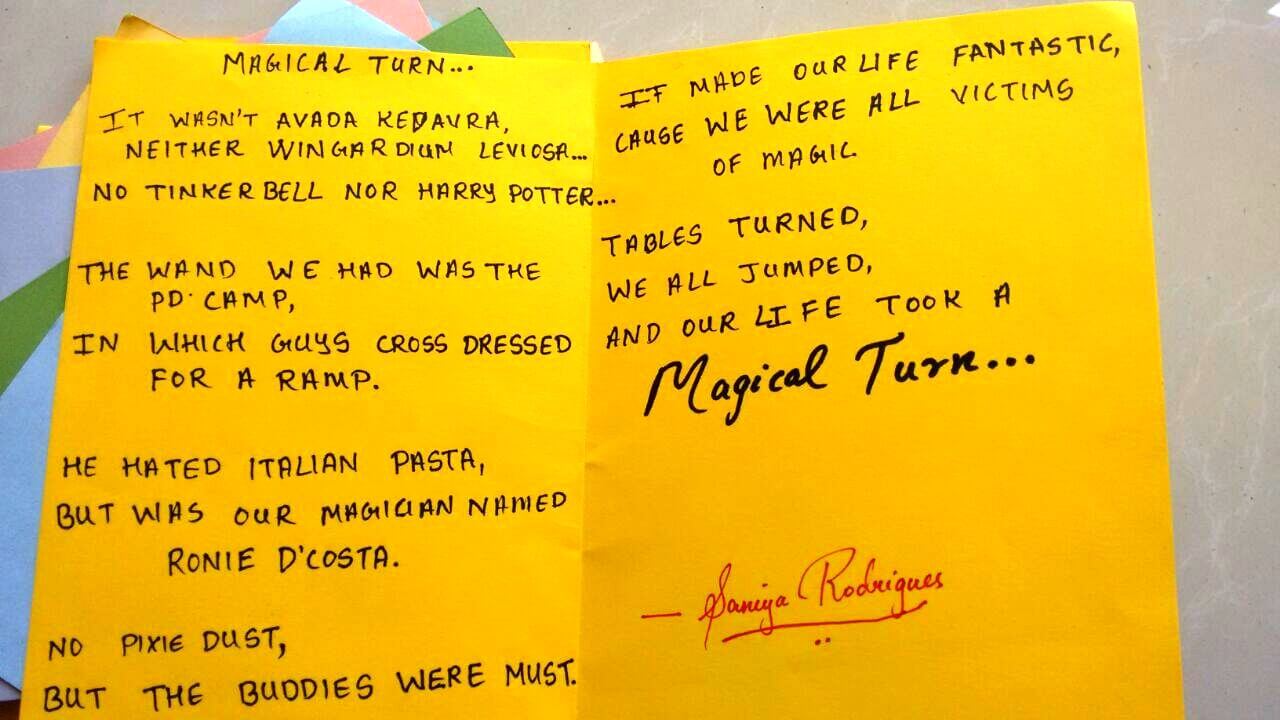 MAGICAL TURN...
IT WASN'T AVADA KEDAVRA,
NEITHER WINGARDIUM LEVIOSA...
NO TINKER BELL NOR HARRY POTTER...
THE WAND WE HAD WAS THE
PD. CAMP,
IN WHICH GUYS CROSS DRESSED
FOR A RAMP.
HE HATED ITALIAN PASTA,
BUT WAS OUR MAGICIAN NAMED
RONIE D'COSTA.
NO PIXIE DUST,
BUT THE BUDDIES WERE MUST.
IT MADE OUR LIFE FANTASTIC,
CAUSE WE WERE ALL VICTIMS
OF MAGIC
TABLES TURNED,
WE ALL JUMPED,
AND OUR LIFE TOOK A
Magical Turn...
— Saniya Rodrigues